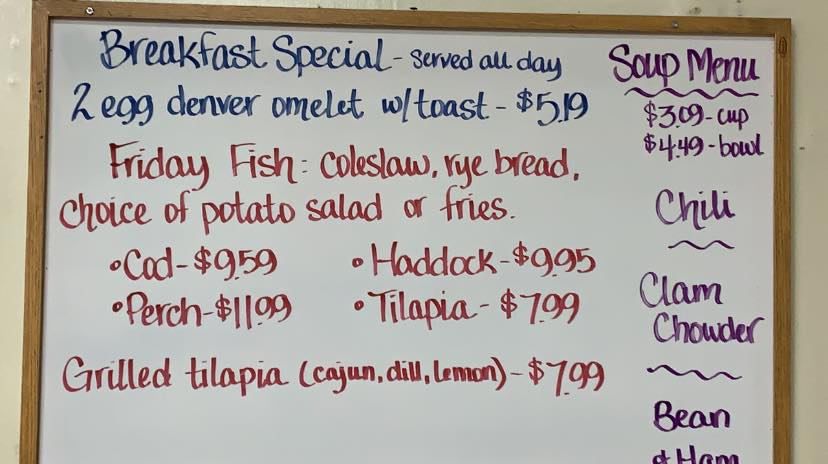 Breakfast Special - served all day
2 egg denver omelet w/toast - $5.19
Friday Fish: coleslaw, rye bread,
choice of potato salad or fries.
• Cod - $9.59
• Haddock - $9.95
• Perch - $11.99
• Tilapia - $7.99
Grilled tilapia (cajun, dill, lemon) - $7.99
Soup Menu
$3.09 - cup
$4.49 - bowl
Chili
Clam
Chowder
Bean
& Ham